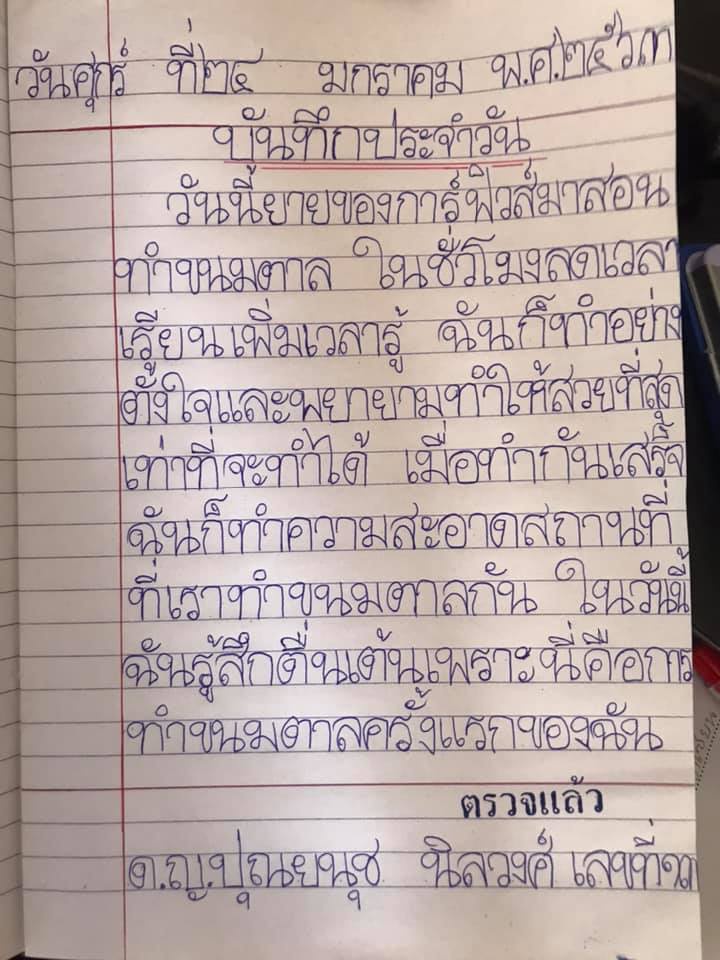 วันศุกร์ ที่๒๔ มกราคม พ.ศ.๒๕๖๓
บันทึกประจำวัน
วันนี้ยายของการ์ฟิวส์มาสอน
ทำขนมตาล ในชั่วโมงลดเวลา
เรียนเพิ่มเวลารู้ ฉันก็ทำอย่าง
ตั้งใจและพยายามทำให้สวยที่สุด
เท่าที่จะทำได้ เมื่อทำกันเสร็จ
ฉันก็ทำความสะอาดสถานที่
ที่เราทำขนมตาลกัน ในวันนี้
ฉันรู้สึกตื่นเต้นเพราะนี่คือการ
ทำขนมตาลครั้งแรกของฉัน
ตรวจแล้ว
ด.ญ.ปุณยนุช นิลวงศ์ เลขที่